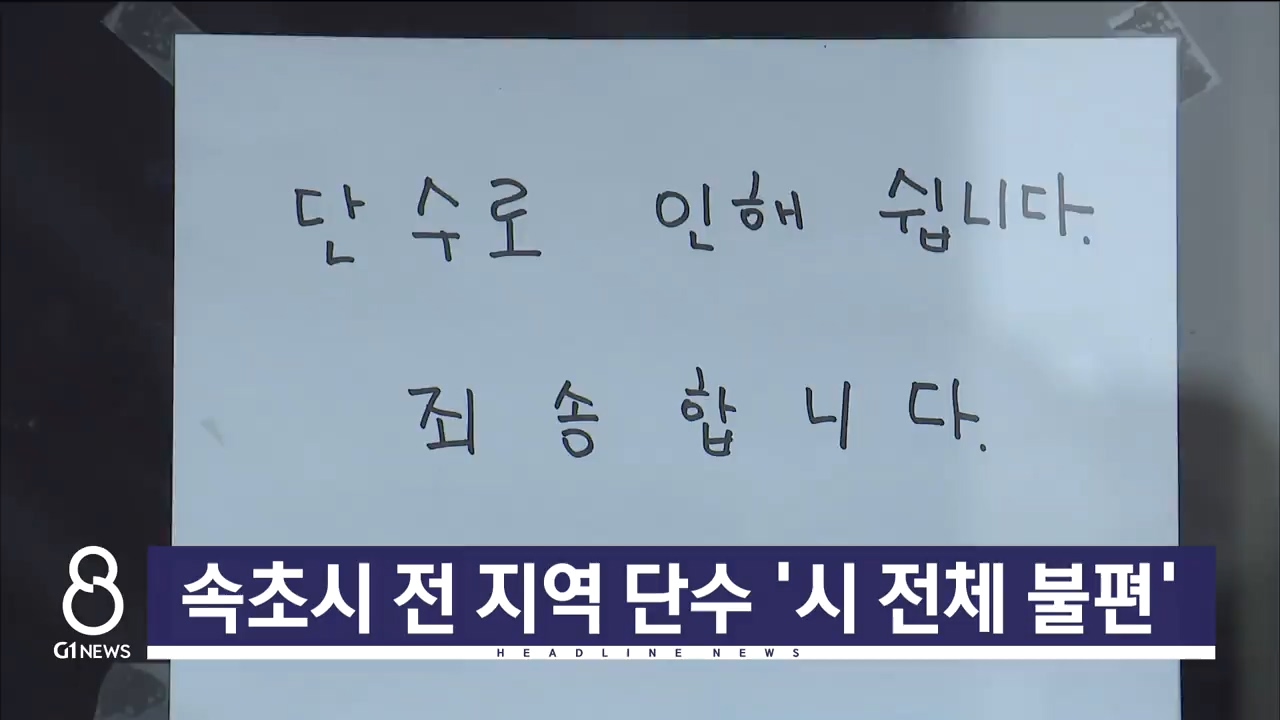 단수로 인해 쉽니다.
죄송합니다.
속초시 전 지역 단수 '시 전체 불편'
8
G1 NEWS
HEADLINE NEWS